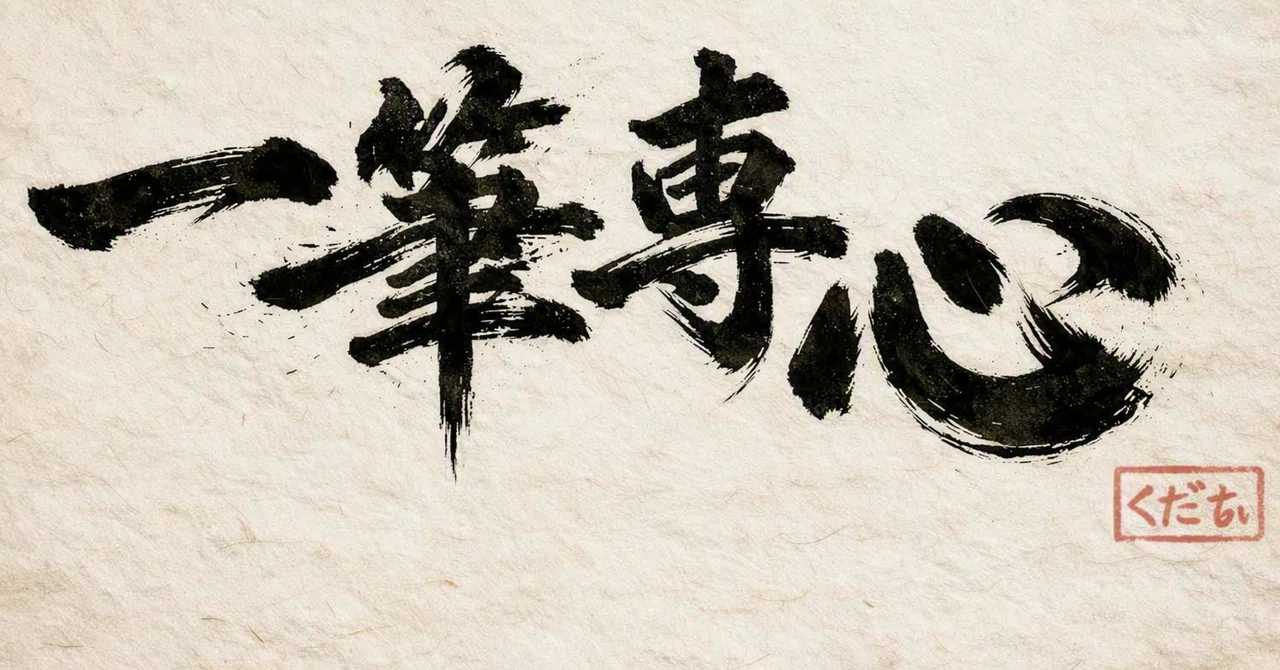 一筆専心
くだちい